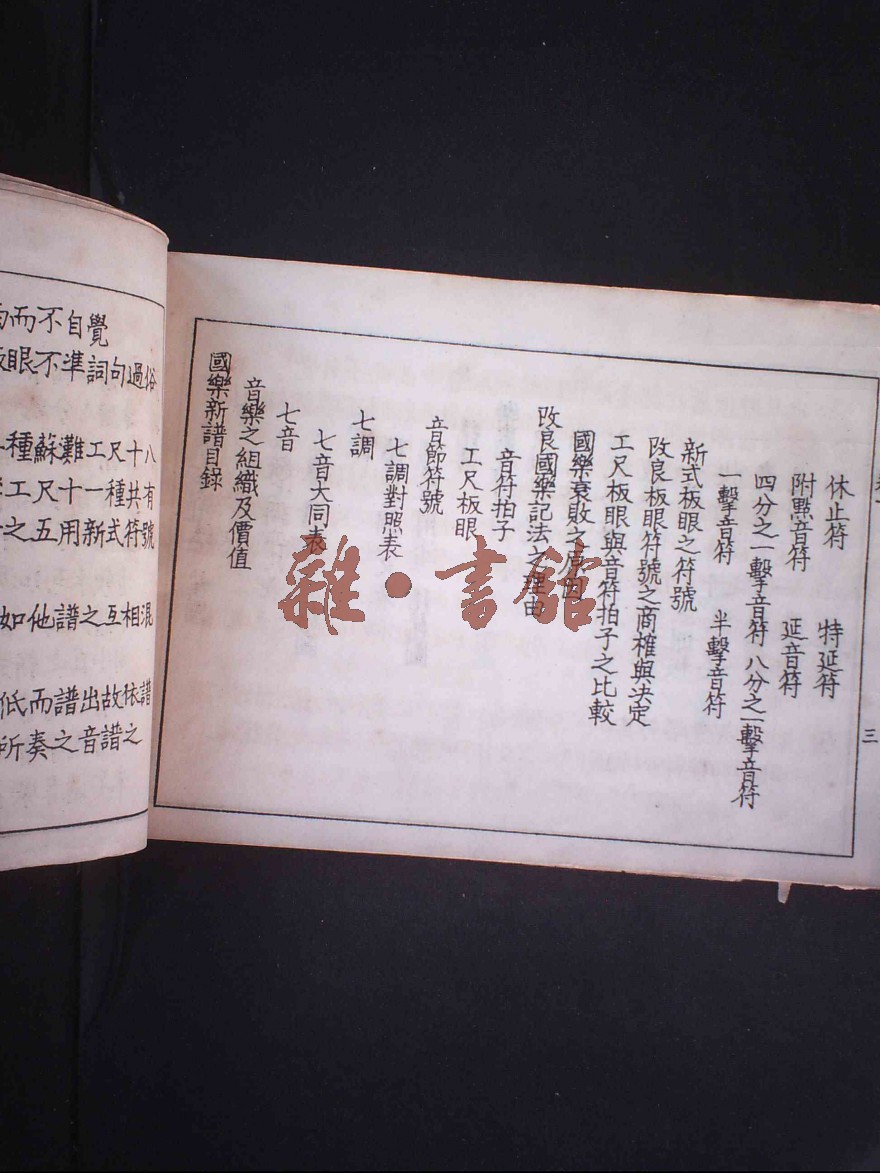 而不自覺
眼不準詞句過俗
種蘇灘工尺十八
工尺十一種共有
之五用新式符號
如他譜之互相混
低而譜出故依譜
所奏之音譜之
國樂新譜目錄
音樂之組織及價值
七音
七音大同表
七調
七調對照表
音節符號
工尺板眼
音符拍子
改良國樂記法之理由
國樂衰敗之原因
工尺板眼與音符拍子之比較
改良板眼符號之商榷與決定
新式板眼之符號
一擊音符 半擊音符
四分之一擊音符 八分之一擊音符
附點音符 延音符
休止符 特延符
三
雜·書館